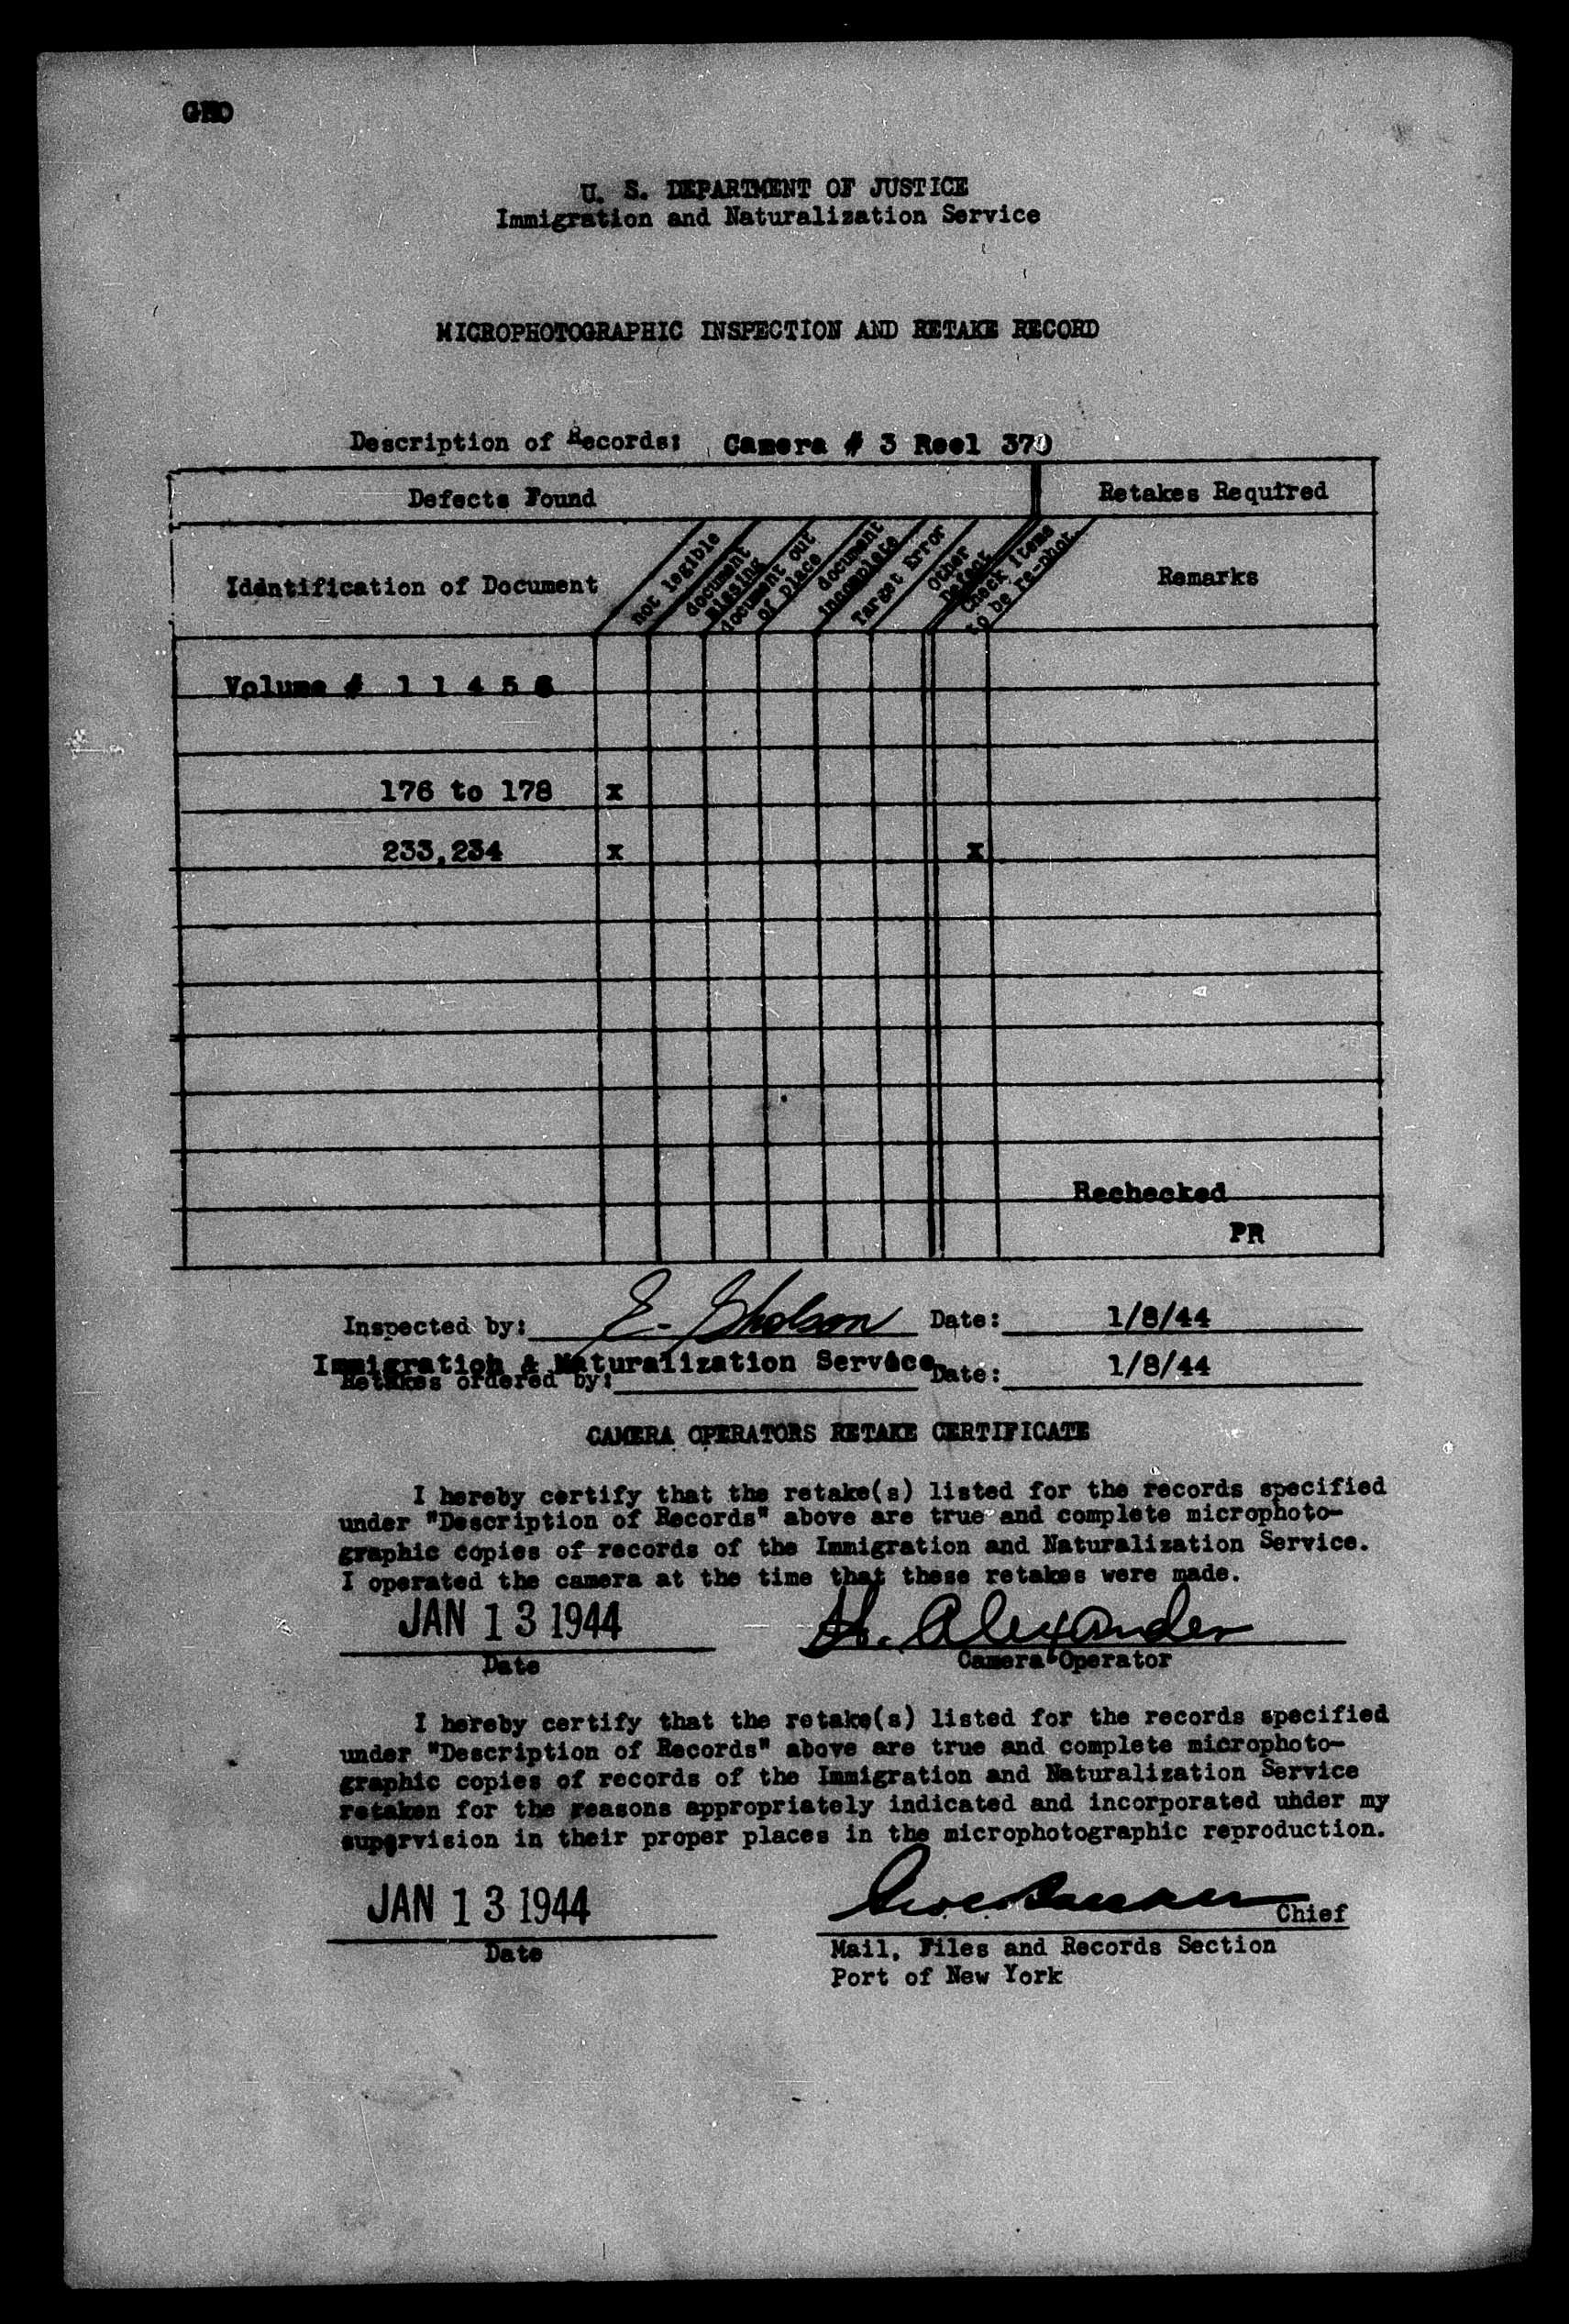 U. S. DEPARTMENT OF JUSTICE
Immigration and Naturalization Service
MICROPHOTOGRAPHIC INSPECTION AND RETAKE RECORD
Description of Records: Camera # 3 Reel 370
Defects Found
Retakes Required
Identification of Document
not legible
document missing
document out of place
document incomplete
Target Error
Other Defect
Check items to be re-phot.
Remarks
Volume #
176 to 178 x
233,234 x x
Rechecked
PR
Inspected by: E. Gholson Date: 1/8/44
Immigration & Naturalization Service
Retakes ordered by: Date: 1/8/44
CAMERA OPERATORS RETAKE CERTIFICATE
I hereby certify that the retake(s) listed for the records specified
under "Description of Records" above are true and complete microphoto-
graphic copies of records of the Immigration and Naturalization Service.
I operated the camera at the time that these retakes were made.
JAN 13 1944 Alexander
Date Camera Operator
I hereby certify that the retake(s) listed for the records specified
under "Description of Records" above are true and complete microphoto-
graphic copies of records of the Immigration and Naturalization Service
retaken for the reasons appropriately indicated and incorporated under my
supervision in their proper places in the microphotographic reproduction.
JAN 13 1944 Chief
Date Mail, Files and Records Section
Port of New York